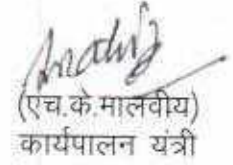 (एच.के.मालवीय)
कार्यपालन यंत्री